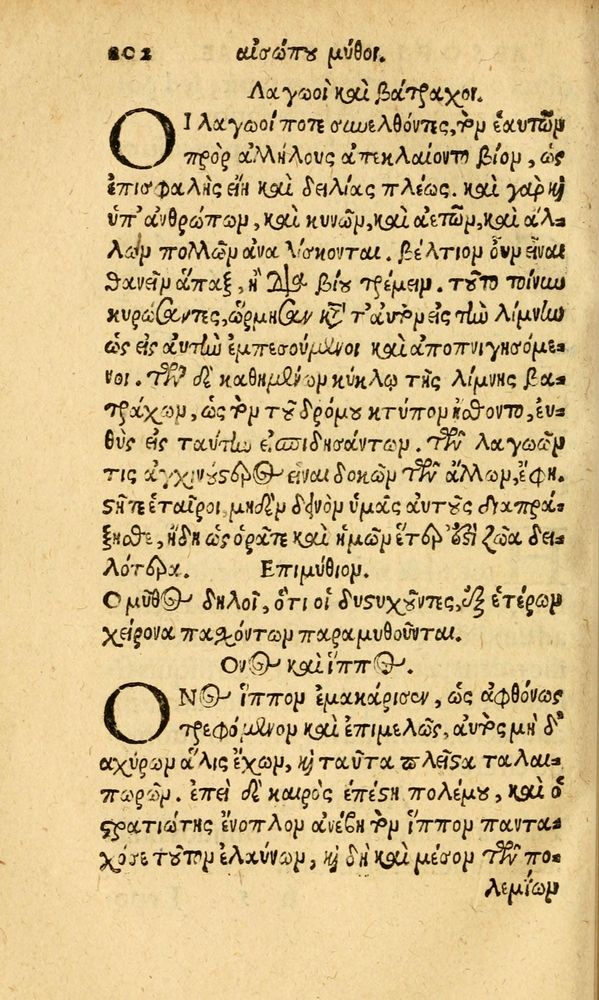 202 αἰσώπου μῦθοι.
Λαγωοὶ καὶ βάτραχοι.
ΟΙ λαγωοί ποτε συνελθόντες, τὸν ἑαυτῶν
πρὸς ἀλλήλους ἀπεκλαίοντο βίον, ὡς
ἐπισφαλὴς εἴη καὶ δειλίας πλέως. καὶ γὰρ καὶ
ὑπ' ἀνθρώπων, καὶ κυνῶν, καὶ ἀετῶν, καὶ ἄλ-
λων πολλῶν ἀναλίσκονται. βέλτιον οὖν εἶναι
θανεῖν ἅπαξ, ἢ διὰ βίου τρέμειν. τοῦτο τοίνυν
κυρώσαντες, ὥρμησαν κατὰ ταὐτὸν εἰς τὴν λίμνην
ὡς εἰς αὐτὴν ἐμπεσούμενοι καὶ ἀποπνιγησόμε-
νοι. τῶν δὲ καθημένων κύκλῳ τῆς λίμνης βα-
τράχων, ὡς τὸν τοῦ δρόμου κτύπον ᾔσθοντο, εὐ-
θὺς εἰς ταύτην εἰσπηδησάντων. τῶν λαγωῶν
τις ἀγχινούστερος εἶναι δοκῶν τῶν ἄλλων, ἔφη.
στῆτε ἑταῖροι, μηδὲν δεινὸν ὑμᾶς αὐτοὺς διαπρά-
ξησθε, ἤδη ὡς ὁρᾶτε καὶ ἡμῶν ἕτερ' ἐστὶ ζῶα δει-
λότερα. Επιμύθιον.
Ο μῦθος δηλοῖ, ὅτι οἱ δυστυχοῦντες, ἐξ ἑτέρων
χείρονα παθόντων παραμυθοῦνται.
Ονος καὶ ἵππος.
ΟΝος ἵππον ἐμακάρισεν, ὡς ἀφθόνως
τρεφόμενον καὶ ἐπιμελῶς, αὐτὸς μηδ'
ἀχύρων ἅλις ἔχων, καὶ ταῦτα πλεῖστα ταλαι-
πωρῶν. ἐπεὶ δὲ καιρὸς ἐπέστη πολέμου, καὶ ὁ
στρατιώτης ἔνοπλον ἀνέβη τὸν ἵππον παντα-
χόσε τοῦτον ἐλαύνων, καὶ δὴ καὶ μέσον τῶν πο-
λεμίων